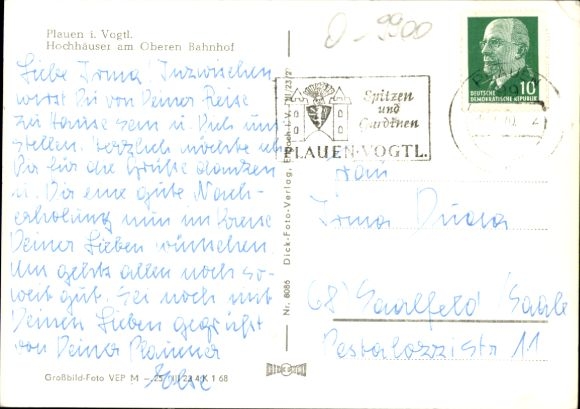 Plauen i. Vogtl.
Hochhäuser am Oberen Bahnhof
O-9900
Liebe Irma! Inzwischen
wirst Du von Deiner Reise
zu Hause sein u. Dich um
stellen. Herzlich möchte ich
Dir für die Grüße danken
u. Dir eine gute Nach-
erholung nun im Kreise
Deiner Lieben wünschen.
Uns geht's allen noch so-
weit gut. Sei noch mit
Deinen Lieben gegrüßt
von Deiner Plauener
Großbild-Foto VEP M – 25/III/23 4 K 1 68
Nr. 8086 Dick-Foto-Verlag, Erlbach i. V. III/23/2
Spitzen
und
Gardinen
PLAUEN·VOGTL.
10
DEUTSCHE
DEMOKRATISCHE REPUBLIK
Frau
Irma
68 Saalfeld/Saale
Pestalozzistr 11